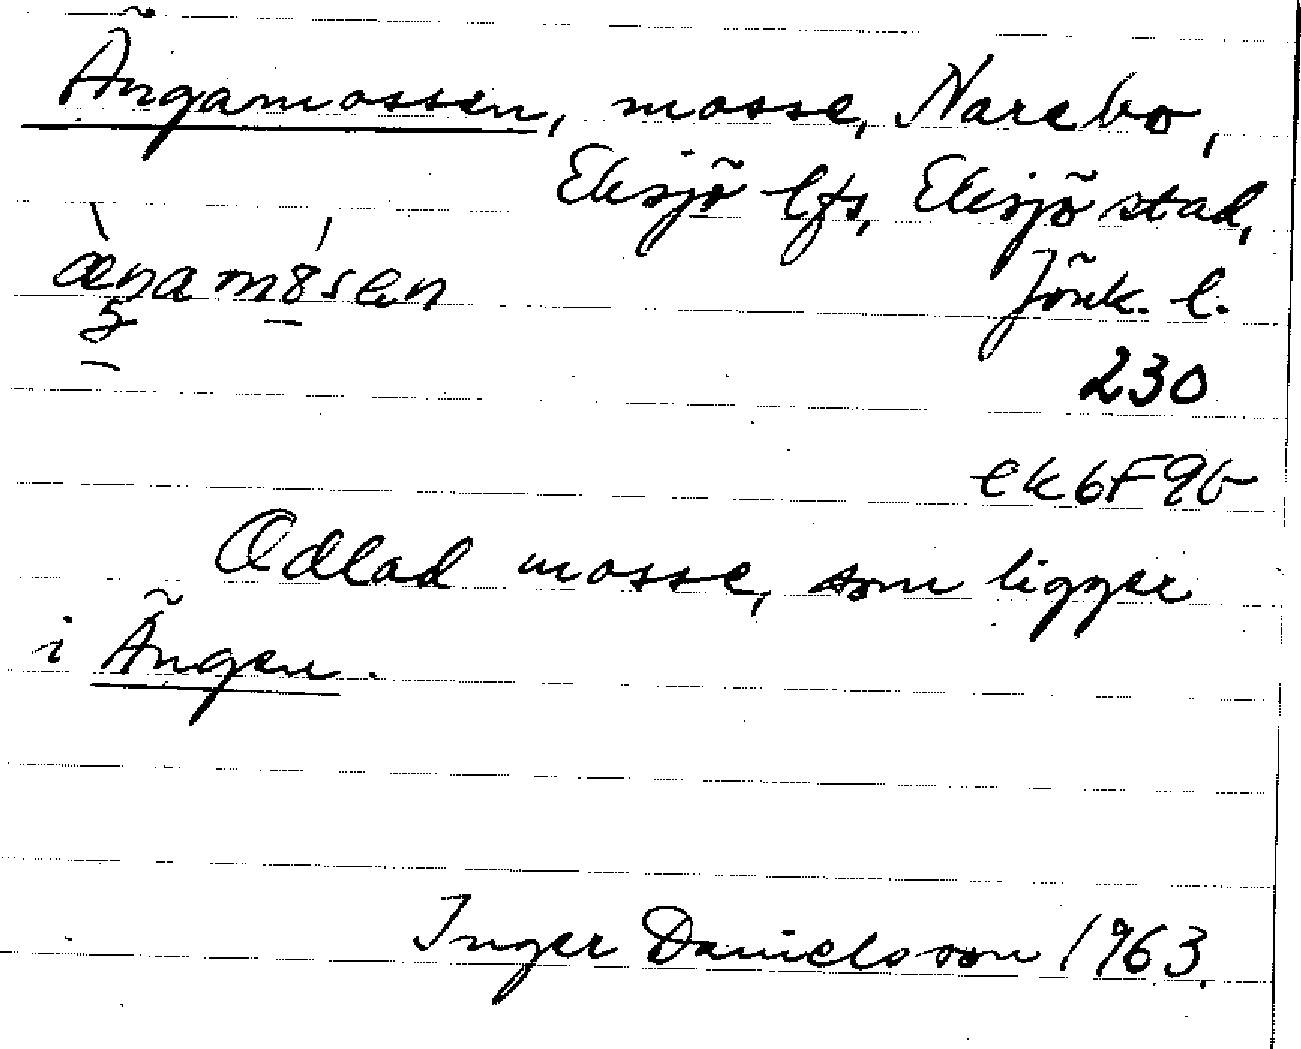 Ängamossen, mosse, Narebo,
Eksjö lfs, Eksjö stad,
Jönk. l.
230
ek 6F9b
Odlad mosse, som ligger
i Ängen.
Inger Danielsson 1963.